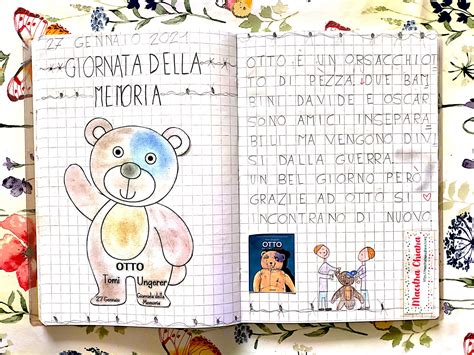 27 GENNAIO 2021
GIORNATA DELLA
MEMORIA
OTTO
Tomi Ungerer
27 Gennaio
Giornata della
Memoria
OTTO È UN ORSACCHIOT
TO DI PEZZA. DUE BAM
BINI DAVIDE E OSCAR
SONO AMICI INSEPARA
BILI MA VENGONO DIVI
SI DALLA GUERRA.
UN BEL GIORNO PERÒ
GRAZIE AD OTTO SI
INCONTRANO DI NUOVO.
OTTO
Maestra Chiara